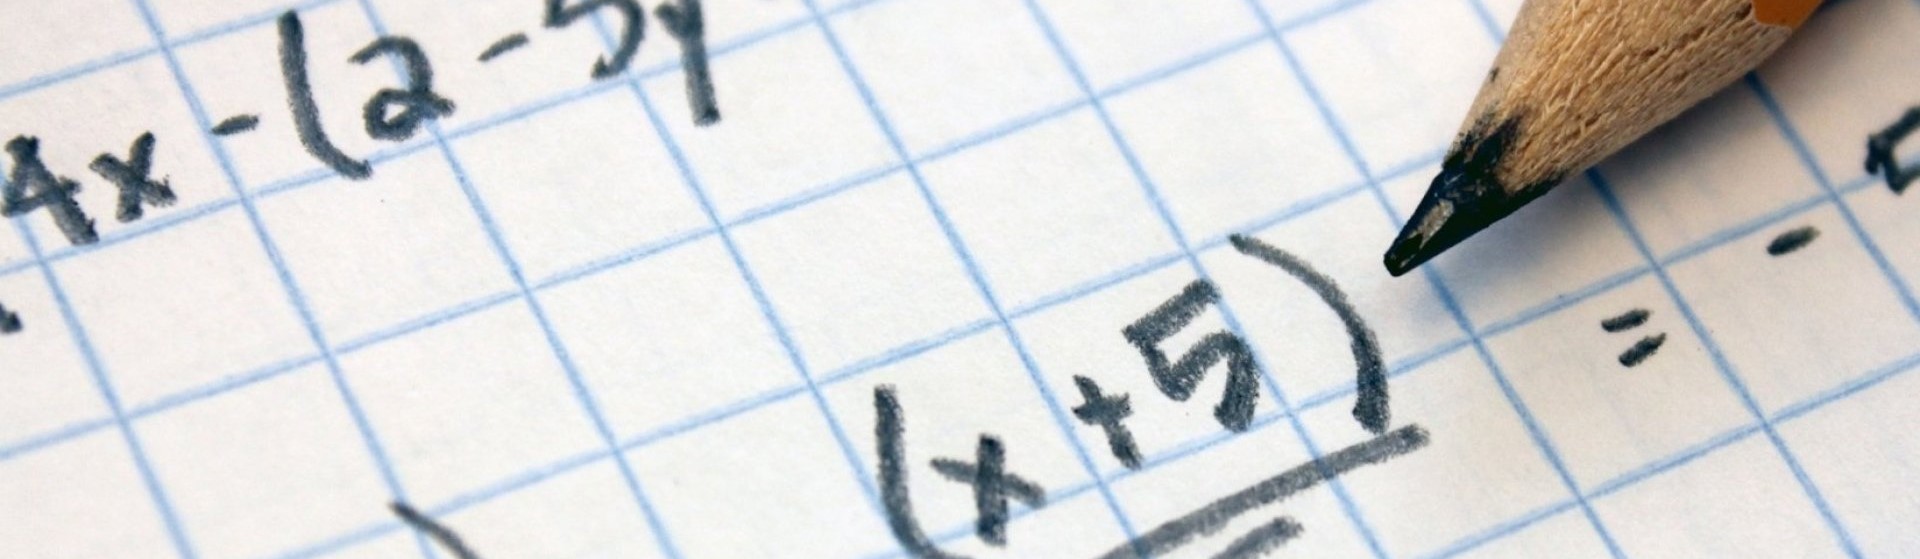 4x - (2 - 5y
(x + 5)
= -